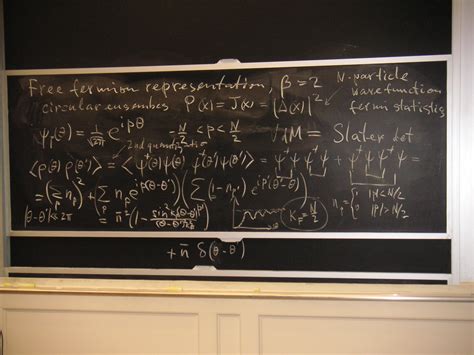 Free fermion representation, β = 2
N-particle wavefunction fermi statistics
circular ensembles P(x) = J(x) = |Δ(x)|²
ψ_p(θ) = 1/√2π e^{ipθ} -N/2 < p < N/2 √M = Slater det
2nd
⟨ρ(θ) ρ(θ')⟩ = ⟨ψ†(θ) ψ(θ) ψ†(θ') ψ(θ')⟩ = ψ†ψ ψ†ψ + ψ†ψ ψ†ψ
= (Σ_p n_p)² + (Σ_p n_p e^{ip(θ-θ')}) (Σ (1-n_p) e^{ip(θ-θ')}) n_p = 1 |p|<N/2 0 |p|>N/2
|θ-θ'| ≪ 2π = n̄² (1 - k_F = N/2
+ n̄ δ(θ-θ')